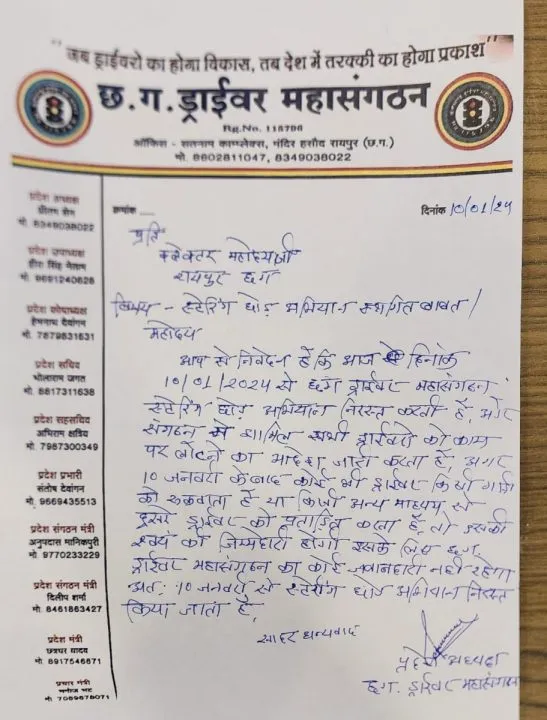 "जब ड्राईवरो का होगा विकास, तब देश में तरक्की का होगा प्रकाश"
छ.ग.ड्राईवर महासंगठन
Rg.No. 115796
ऑफिस - सतनाम काम्प्लेक्स, मंदिर हसौद रायपुर (छ.ग.)
मो. 8602811047, 8349038022
क्रमांक
दिनांक 10/01/24
प्रदेश अध्यक्ष
प्रीतम सेन
मो. 8349038022
प्रदेश उपाध्यक्ष
हीरा सिंह नेताम
मो. 9691240628
प्रदेश कोषाध्यक्ष
हेमनाथ देवांगन
मो. 7879831631
प्रदेश सचिव
भोलाराम जगत
मो. 8817311638
प्रदेश सहसचिव
अभिराम क्षत्रिय
मो. 7987300349
प्रदेश प्रभारी
संतोष देवांगन
मो. 9669435513
प्रदेश संगठन मंत्री
अनुपदास मानिकपुरी
मो. 9770233229
प्रदेश संगठन मंत्री
दिलीप शर्मा
मो. 8461863427
प्रदेश मंत्री
छत्रधर यादव
मो. 8917546671
प्रचार मंत्री
मनोज भट
मो. 7089878071
प्रति
कलेक्टर महोदयजी
रायपुर छग
विषय - स्टेरिंग छोड़ अभियान स्थगित बाबत/
महोदय
आप से निवेदन है कि आज दिनांक
10/01/2024 से छग ड्राईवर महासंगठन
स्टेरिंग छोड़ अभियान निरस्त करती है, और
संगठन से शामिल सभी ड्राईवरो को काम
पर लौटने का आदेश जारी करता है, अगर
10 जनवरी के बाद कोई भी ड्राईवर किसी गाड़ी
को रुकवाता है या किसी अन्य माध्यम से
दूसरे ड्राईवर को प्रताड़ित करता है, तो इसकी
स्वयं की जिम्मेदारी होगी इसके लिए छग
ड्राईवर महासंगठन का कोई जवाबदारी नही रहेगा
अतः 10 जनवरी से स्टेरिंग छोड़ अभियान निरस्त
किया जाता है,
सादर धन्यवाद
प्रदेश अध्यक्ष
छग. ड्राईवर महासंगठन